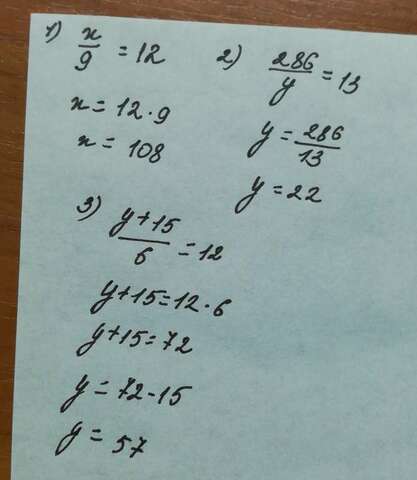 1) x/9 = 12
x = 12 · 9
x = 108
2) 286/y = 13
y = 286/13
y = 22
3) y+15/6 = 12
y+15=12·6
y+15=72
y = 72-15
y = 57